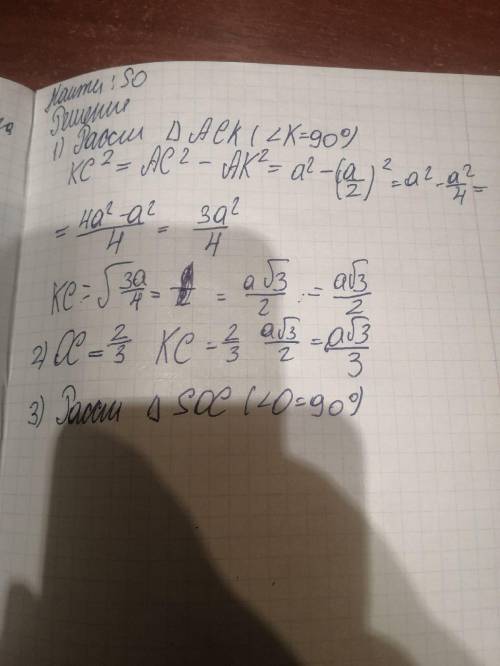 Найти: SO
Решение
1) Рассм Δ ACK (∠K=90°)
KC² = AC² - AK² = a² - (a/2)² = a² - a²/4 =
= 4a²-a²/4 = 3a²/4
KC = √3a/4 = = a√3/2 := a√3/2
2) OC = 2/3 KC = 2/3 a√3/2 = a√3/3
3) Рассм Δ SOC (∠O=90°)